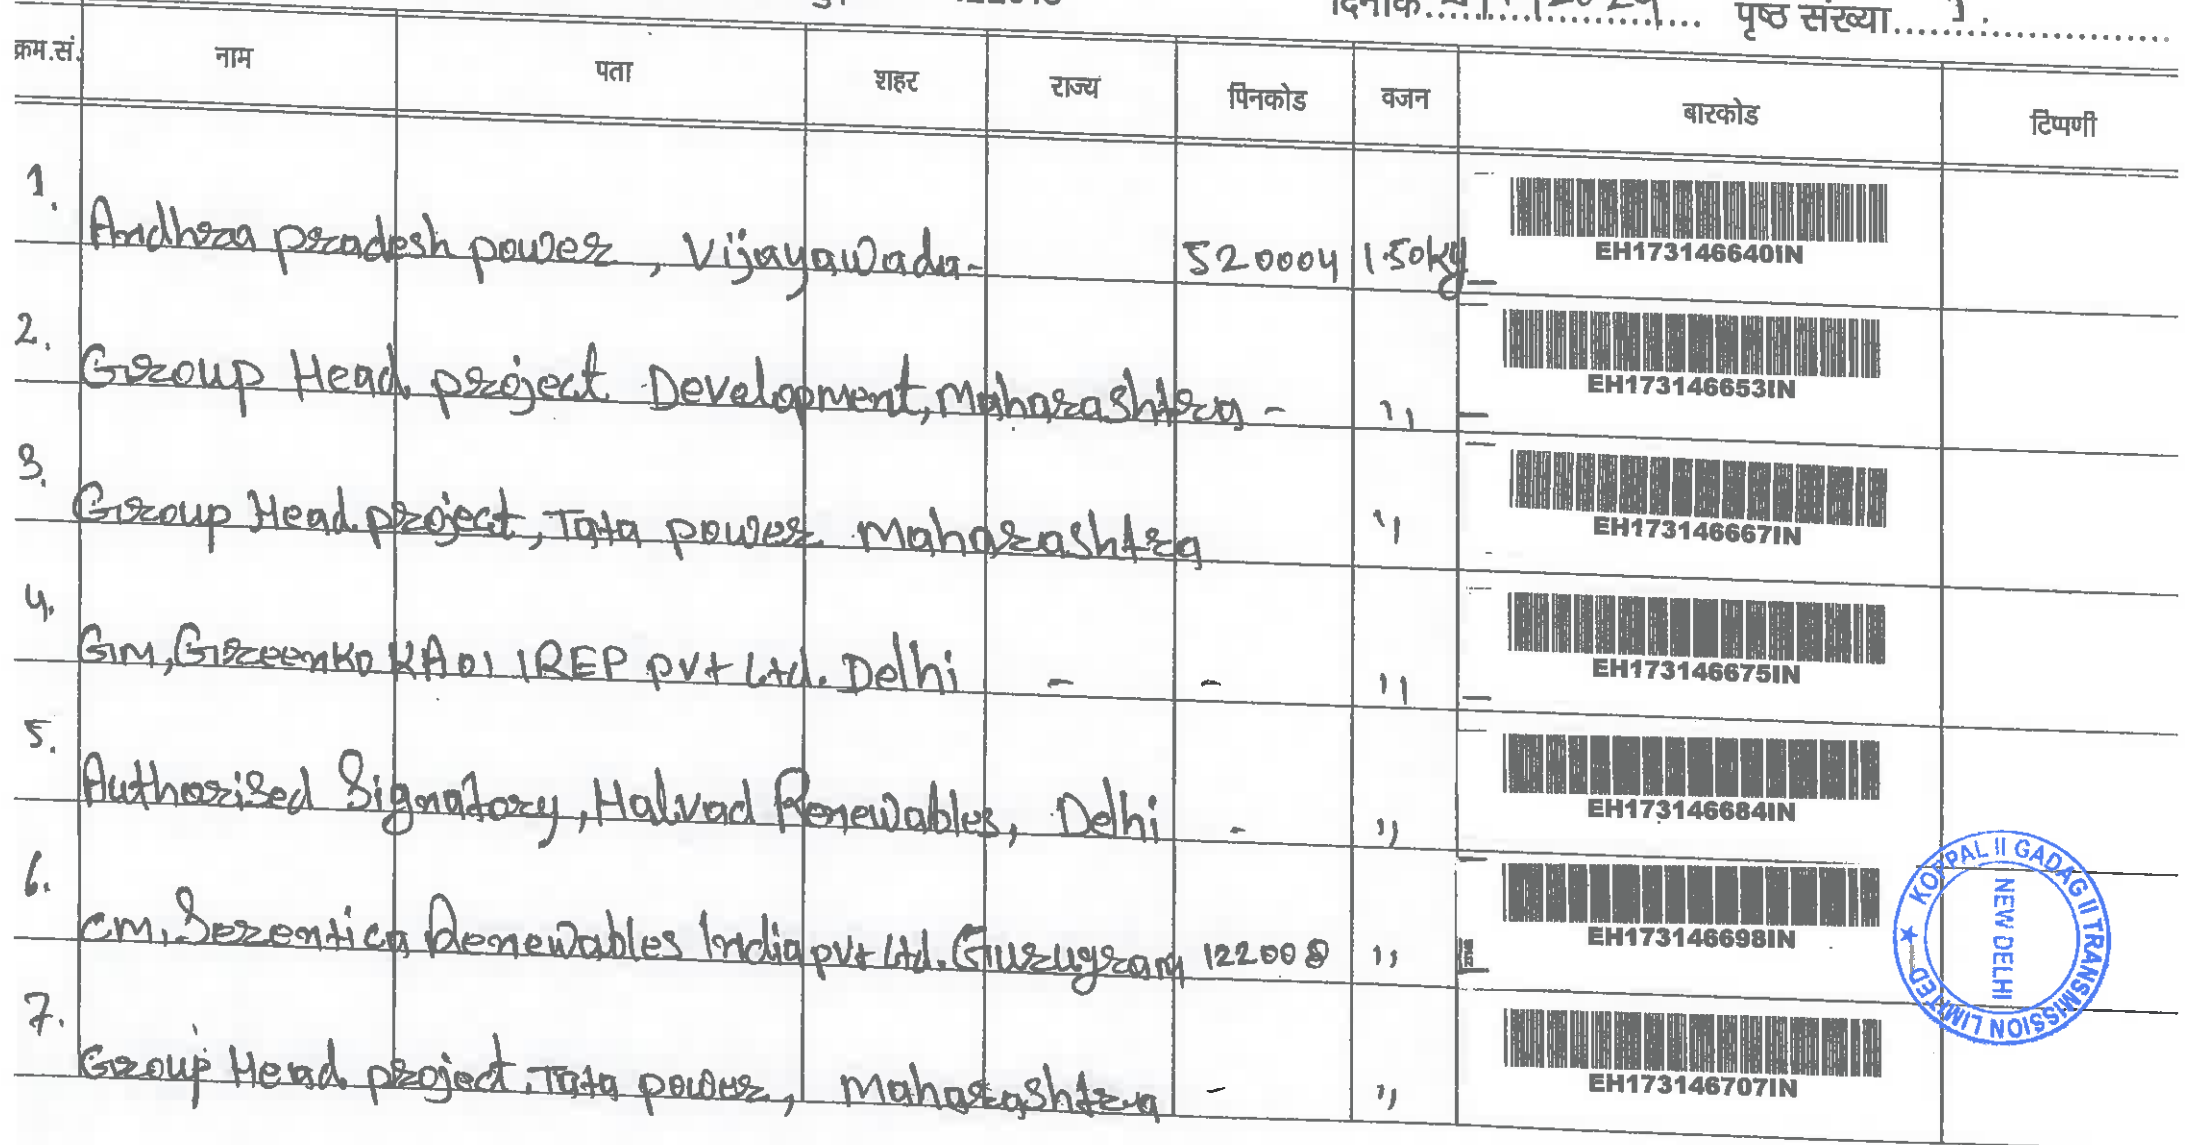 दिनांक पृष्ठ संख्या
क्रम.सं. नाम पता शहर राज्य पिनकोड वजन बारकोड टिप्पणी
1. Andhra pradesh power, Vijayawada- 520004 1.50kg EH173146640IN
2. Group Head project Development, Maharashtra - ,, EH173146653IN
3. Group Head project, Tata power Maharashtra ,, EH173146667IN
4. GM, Greenko KA01 IREP pvt Ltd. Delhi - - ,, EH173146675IN
5. Authorised Signatory, Halvad Renewables, Delhi - ,, EH173146684IN
6. CM, Serentica Renewables India pvt Ltd. Gurugram 122008 ,, EH173146698IN
7. Group Head project, Tata power, Maharashtra - ,, EH173146707IN
KOPPAL II GADAG II TRANSMISSION LIMITED
NEW DELHI